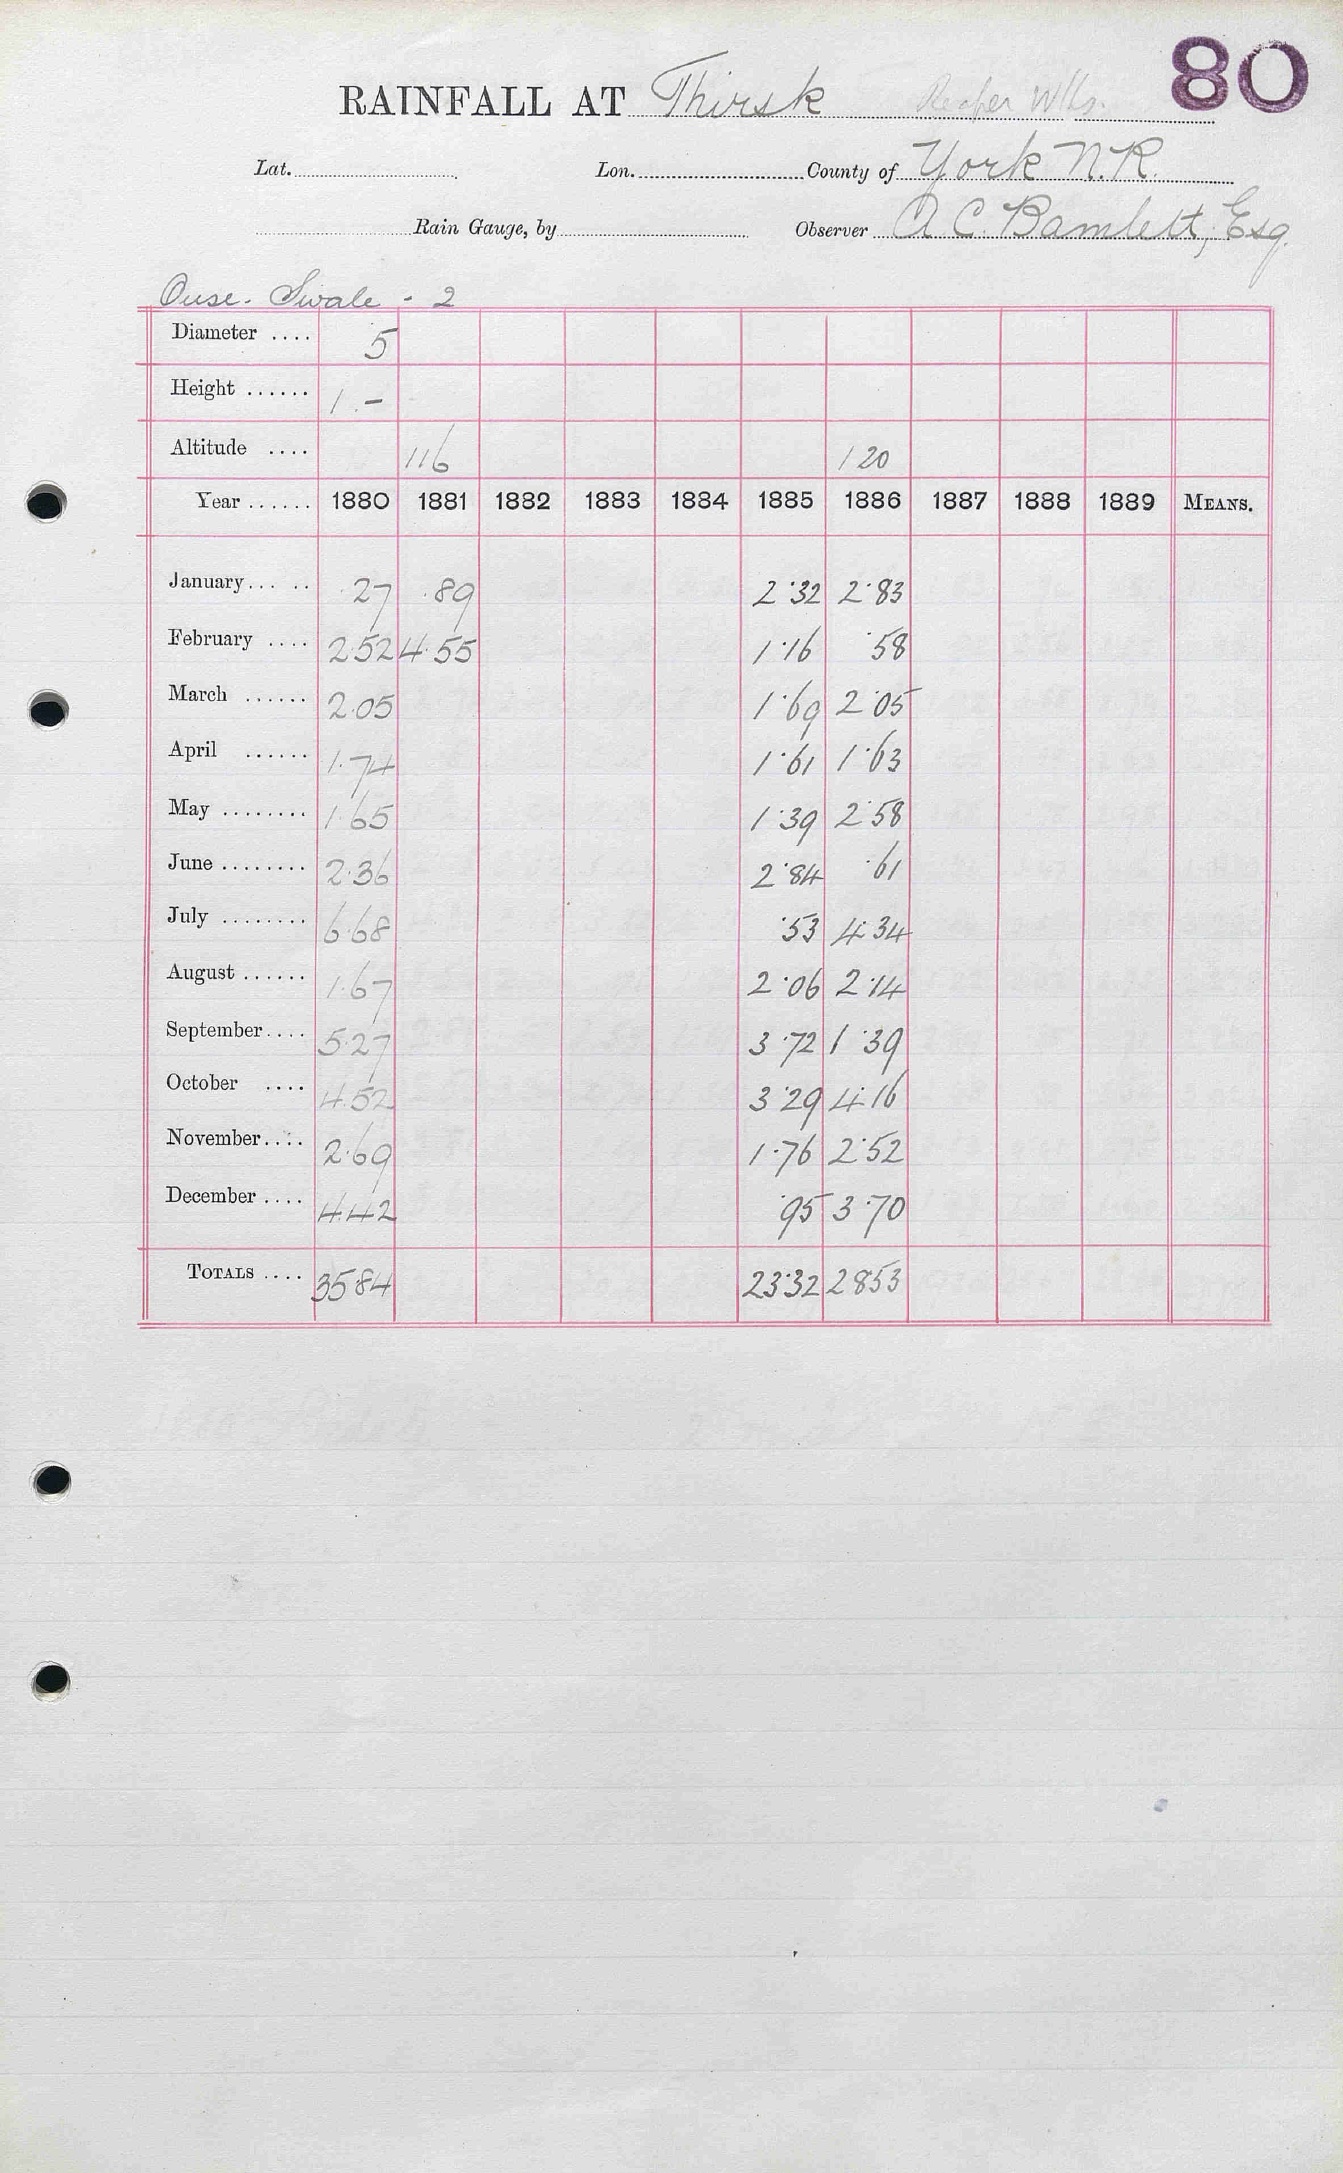 80
RAINFALL AT Thirsk Reaper Wks.
Lat. Lon. County of York N.R.
Rain Gauge, by Observer A C. Bamlett, Esq.
Ouse. Swale - 2
Diameter .... 5
Height ...... 1.-
Altitude .... 116 120
Year ...... 1880 1881 1882 1883 1884 1885 1886 1887 1888 1889 MEANS.
January... .. .27 .89 2.32 2.83
February .... 2.52 4.55 1.16 .58
March ...... 2.05 1.69 2.05
April ...... 1.74 1.61 1.63
May ........ 1.65 1.39 2.58
June ........ 2.36 2.84 .61
July ........ 6.68 .53 4.34
August ...... 1.67 2.06 2.14
September.... 5.27 3.72 1.39
October .... 4.52 3.29 4.16
November.... 2.69 1.76 2.52
December .... 4.42 .95 3.70
TOTALS .... 35.84 23.32 28.53